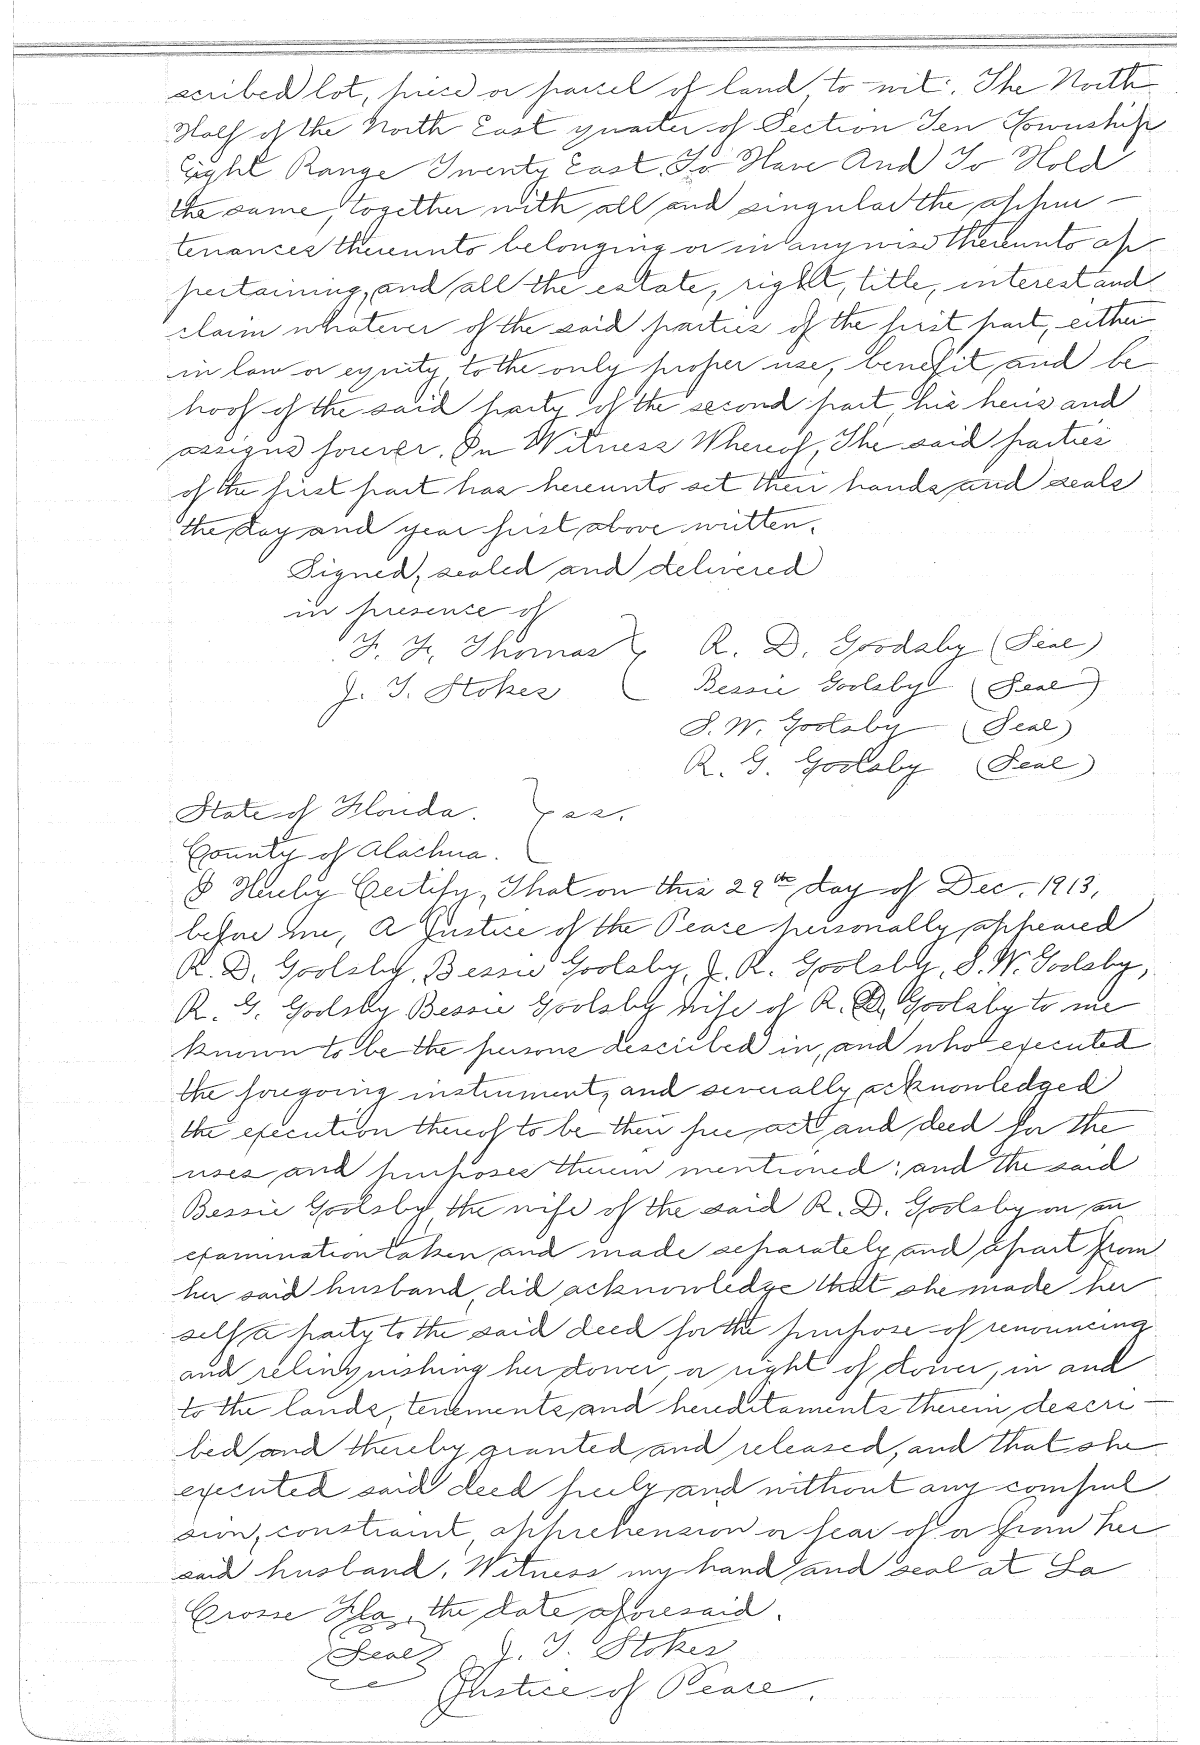 scribed lot, piece or parcel of land, to-wit: The North
Half of the North East quarter of Section Ten Township
Eight Range Twenty East. To Have And To Hold
the same, together with all and singular the appur-
tenances thereunto belonging or in anywise thereunto ap
pertaining, and all the estate, right, title, interest and
claim whatever of the said parties of the first part, either
in law or equity, to the only proper use, benefit, and be
hoof of the said party of the second part, his heirs and
assigns forever. In Witness Whereof, The said parties
of the first part has hereunto set their hands and seals
the day and year first above written.
Signed, sealed and delivered
in presence of
F. F. Thomas } R. D. Goodsby (Seal)
J. T. Stokes Bessie Goolsby (Seal)
S. W. Goolsby (Seal)
R. G. Goolsby (Seal)
State of Florida. } ss.
County of Alachua.
I Hereby Certify, That on this 29th day of Dec. 1913,
before me, A Justice of the Peace personally appeared
R. D. Goolsby, Bessie Goolsby, J. R. Goolsby, S. W. Goolsby,
R. G. Goolsby Bessie Goolsby wife of R. D. Goolsby to me
known to be the persons described in, and who executed
the foregoing instrument, and severally acknowledged
the execution thereof to be their free act and deed for the
uses and purposes therein mentioned; and the said
Bessie Goolsby, the wife of the said R. D. Goolsby on an
examination taken and made separately and apart from
her said husband, did acknowledge that she made her
self a party to the said deed for the purpose of renouncing
and relinquishing her dower, or right of dower, in and
to the lands, tenements and hereditaments therein descri-
bed and thereby granted and released, and that she
executed said deed freely and without any compul
sion, constraint, apprehension or fear of or from her
said husband. Witness my hand and seal at La
Crosse Fla, the date aforesaid.
(Seal) J. T. Stokes
Justice of Peace.